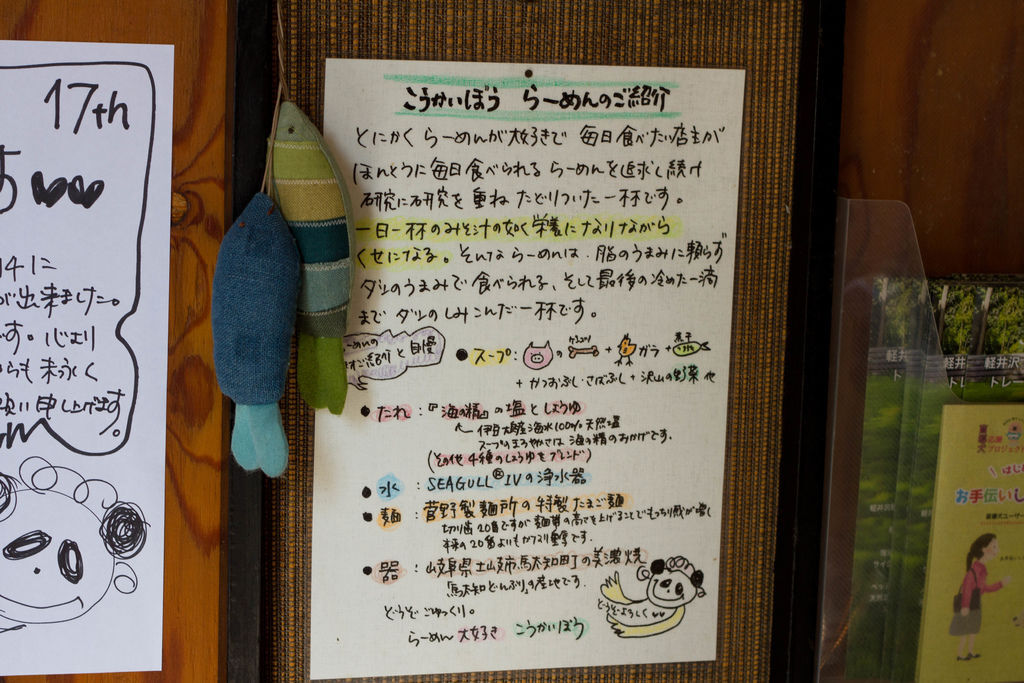 17th
す
4に
が出来ました。
です。心より
らも末永く
願い申し上げます。
こうかいぼう らーめんのご紹介
とにかく らーめんが大好きで 毎日食べたい店主が
ほんとうに毎日食べられる らーめんを追求し続け
研究に研究を重ね たどりついた一杯です。
一日一杯のみそ汁の如く栄養になりながら
くせになる。そんならーめんは、脂のうまみに頼らず
ダシのうまみで食べられる、そして最後の冷めた一滴
まで ダシのしみこんだ一杯です。
ご紹介と自慢
●スープ: の + ガラ + 煮干
+ かつおぶし・さばぶし + 沢山の野菜 や
●たれ:『海の精』の塩としょうゆ
伊豆大島産海水100%天然塩
スープのまろやかさは海の精のおかげです。
(その他4種のしょうゆをブレンド)
●水:SEAGULL® IVの浄水器
●麺:菅野製麺所の特製たまご麺
切り歯20番ですが麺帯の高さを上げることでもっちり感が増し
本来の20番よりもかつ重厚です。
●器:岐阜県土岐市馬太知町の美濃焼
「馬太知どんぶり」の産地です。
どうぞごゆっくり。
どうぞよろしく
らーめん大好き こうかいぼう
軽井沢
トレー
プロジェクト
はじ
お手伝いし